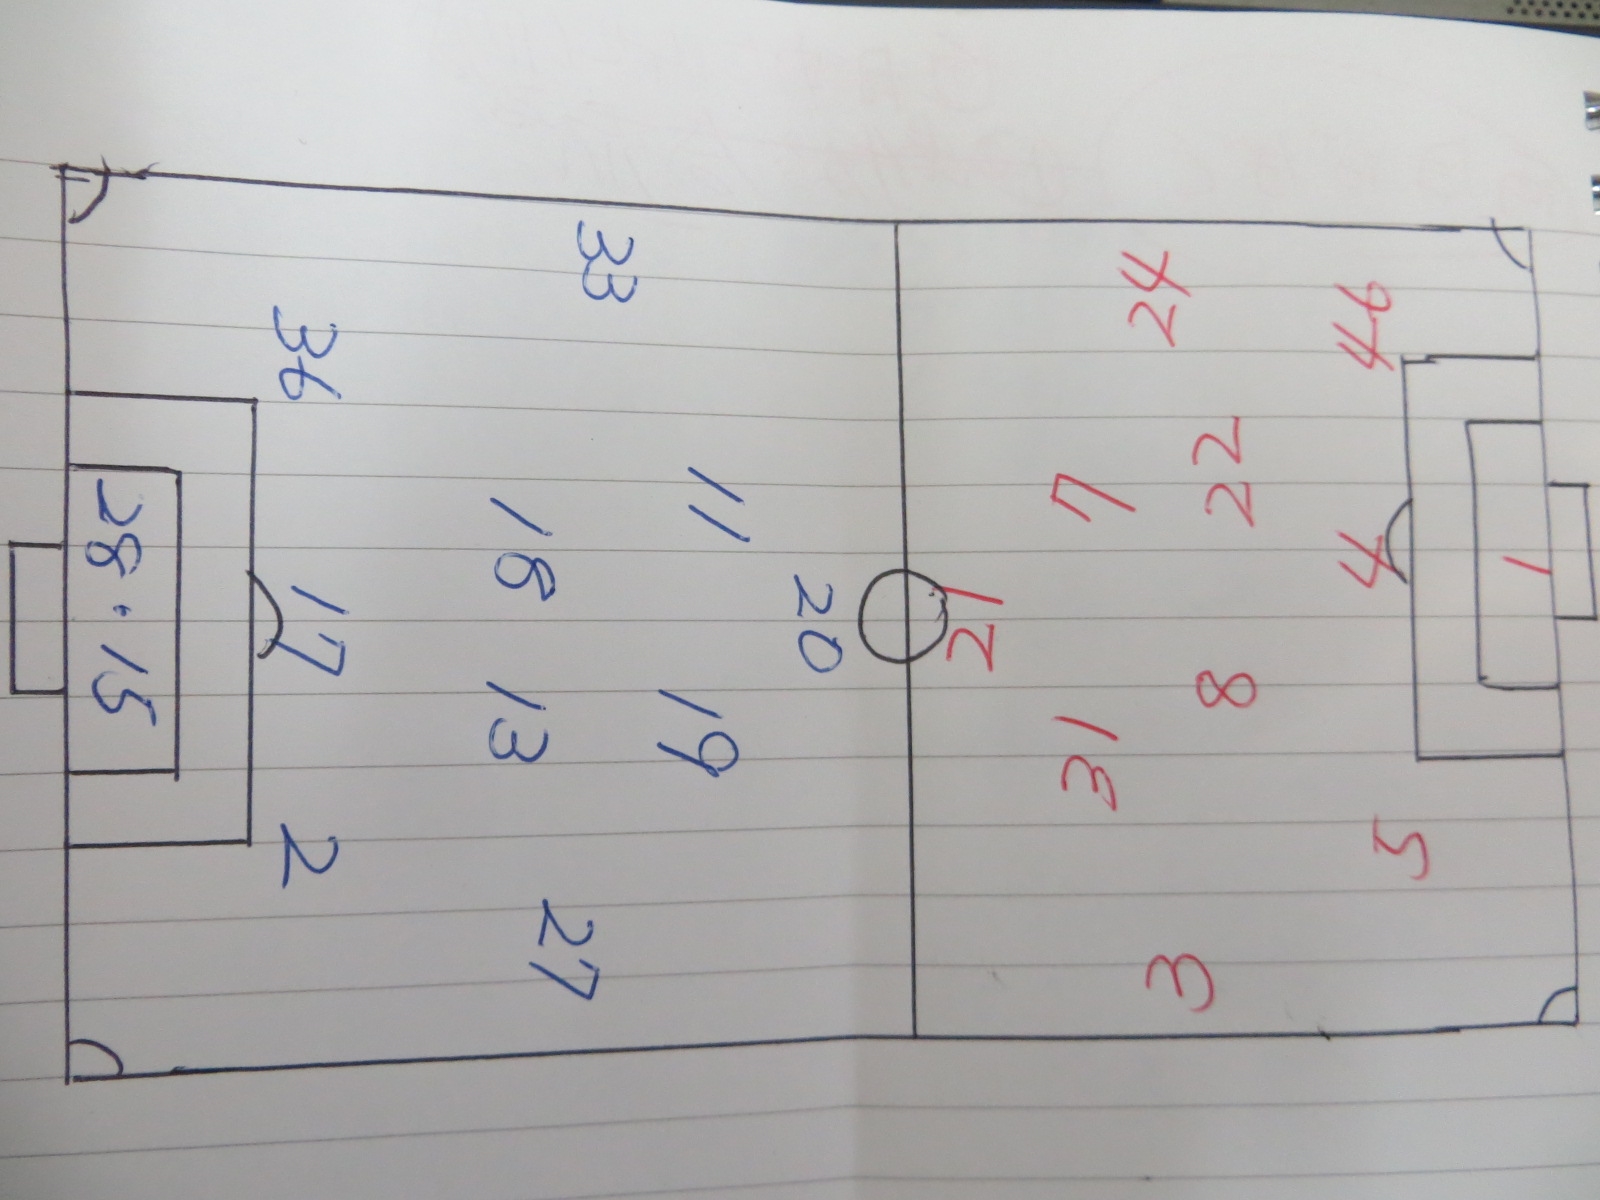 33
36
28・15
17
2
27
18
13
11
19
20
24
46
7
22
4
1
21
8
31
5
3